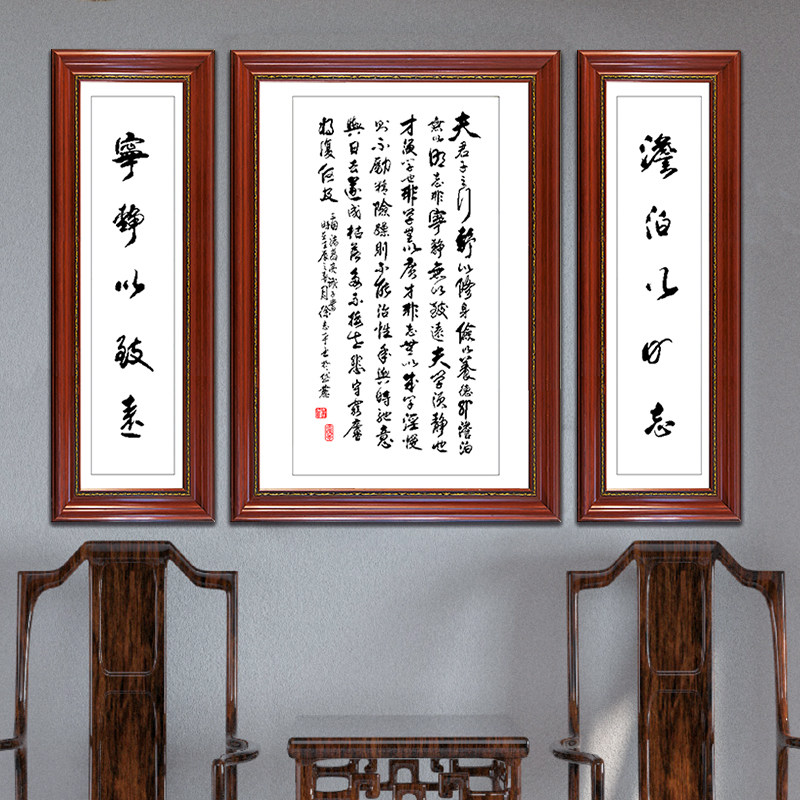 澹泊以明志
夫君子之行靜以修身儉以養德非澹泊
無以明志非寧靜無以致遠夫學須靜也
才須學也非學無以廣才非志無以成學淫慢
則不勵精險躁則不能治性年與時馳意
與日去遂成枯落多不接世悲守窮廬
將復何及
三國諸葛亮誡子書
寧靜以致遠